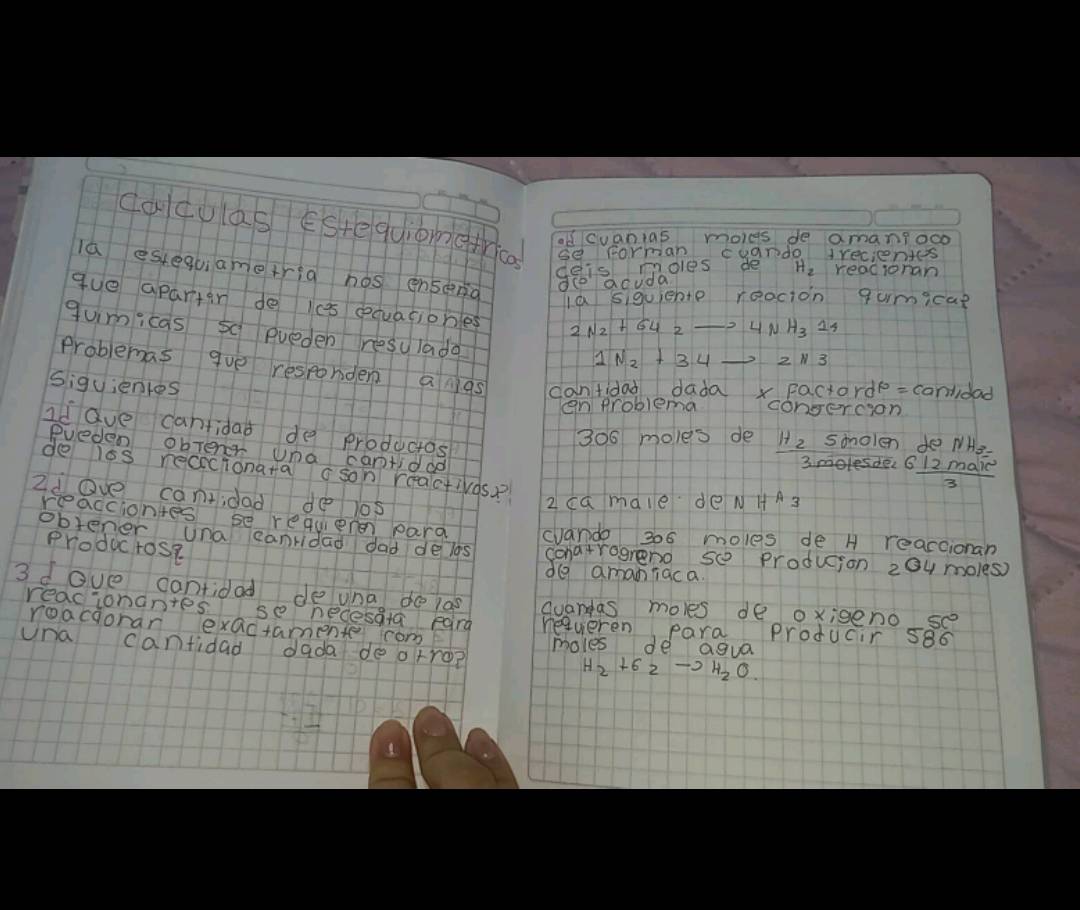 calculas Estequiometricas
la estequiametria nos enseña
que apartir de las ecuaciones
quimicas se pueden resulado
problemas que responden a las
siguientes
1¿ Que cantidad de productos
pueden obtener una cantidad
de los
2¿ Que cantidad de los
reacciontes se requieren para
obtener una cantidad dad de los
productos?
3¿ Que cantidad de una de las
reacionantes se necesata para
reacdonar exactamente com
una cantidad dada de otro?
cuantas moles de amanioco
se forman cuando trecientes
ceis moles de H₂ reacionan
de acuda
la siguiente reación quimica?
2N₂ + 6H 2 → 4NH₃ 14
1N₂ + 3H → 2N3
cantidad dada x factor de = cantidad
en problema conbercion
306 moles de H₂ de NH₃=
3 moles de 6 12 male
3
2 ca male de NH^A3
cuando 306 moles de H reaccionan
se producion 204 moles
de amaniaca.
cuantas moles de oxigeno se
requeren para producir 586
moles de agua
H₂ + 6 2 → H₂O.